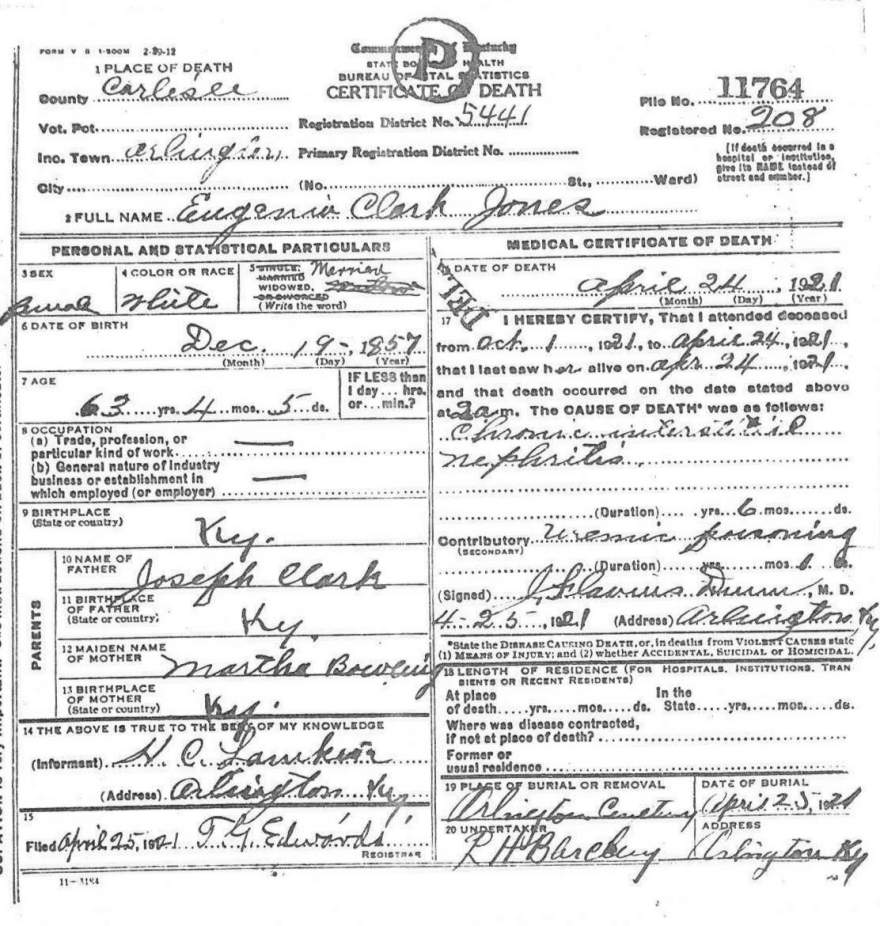 FORM V S 1-200M 2-29-12
Commonwealth of Kentucky
STATE BOARD OF HEALTH
BUREAU OF VITAL STATISTICS
CERTIFICATE OF DEATH
1 PLACE OF DEATH
County Carlisle
Vot. Pct.
Inc. Town Arlington
City (No. St., Ward)
Registration District No. 5441
Primary Registration District No.
File No. 11764
Registered No. 208
[If death occurred in a
hospital or institution,
give its NAME instead of
street and number.]
2 FULL NAME Eugenia Clark Jones
PERSONAL AND STATISTICAL PARTICULARS
3 SEX
Female
4 COLOR OR RACE
White
5 SINGLE, Married
MARRIED
WIDOWED,
OR DIVORCED
(Write the word)
6 DATE OF BIRTH
Dec. 19 - 1857
(Month) (Day) (Year)
7 AGE
63 yrs. 4 mos. 5 ds.
IF LESS than
1 day... hrs.
or... min.?
8 OCCUPATION
(a) Trade, profession, or
particular kind of work
(b) General nature of industry
business or establishment in
which employed (or employer)
9 BIRTHPLACE
(State or country)
Ky.
PARENTS
10 NAME OF
FATHER
Joseph Clark
11 BIRTHPLACE
OF FATHER
(State or country)
Ky.
12 MAIDEN NAME
OF MOTHER
Martha Bowling
13 BIRTHPLACE
OF MOTHER
(State or country)
Ky.
14 THE ABOVE IS TRUE TO THE BEST OF MY KNOWLEDGE
(Informant) H. C. Lamkin
(Address) Arlington Ky
15
Filed April 25, 1921 T. G. Edwards
REGISTRAR
11-3184
MEDICAL CERTIFICATE OF DEATH
16 DATE OF DEATH
April 24, 1921
(Month) (Day) (Year)
17 I HEREBY CERTIFY, That I attended deceased
from Oct. 1, 1921, to April 24, 1921,
that I last saw her alive on Apr. 24, 1921
and that death occurred on the date stated above
at 2 a m. The CAUSE OF DEATH* was as follows:
Chronic interstitial
nephritis
(Duration) yrs. 6 mos. ds.
Contributory Uremic poisoning
(SECONDARY)
(Duration) yrs. mos. ds.
(Signed) J. Flavius Dunn, M. D.
4-25, 1921 (Address) Arlington Ky.
*State the DISEASE CAUSING DEATH, or, in deaths from VIOLENT CAUSES state
(1) MEANS OF INJURY; and (2) whether ACCIDENTAL, SUICIDAL or HOMICIDAL.
18 LENGTH OF RESIDENCE (FOR HOSPITALS, INSTITUTIONS, TRAN
SIENTS OR RECENT RESIDENTS)
At place In the
of death yrs. mos. ds. State yrs. mos. ds.
Where was disease contracted,
if not at place of death?
Former or
usual residence
19 PLACE OF BURIAL OR REMOVAL
Arlington Cemetery
DATE OF BURIAL
April 25, 1921
20 UNDERTAKER
ADDRESS
Arlington Ky